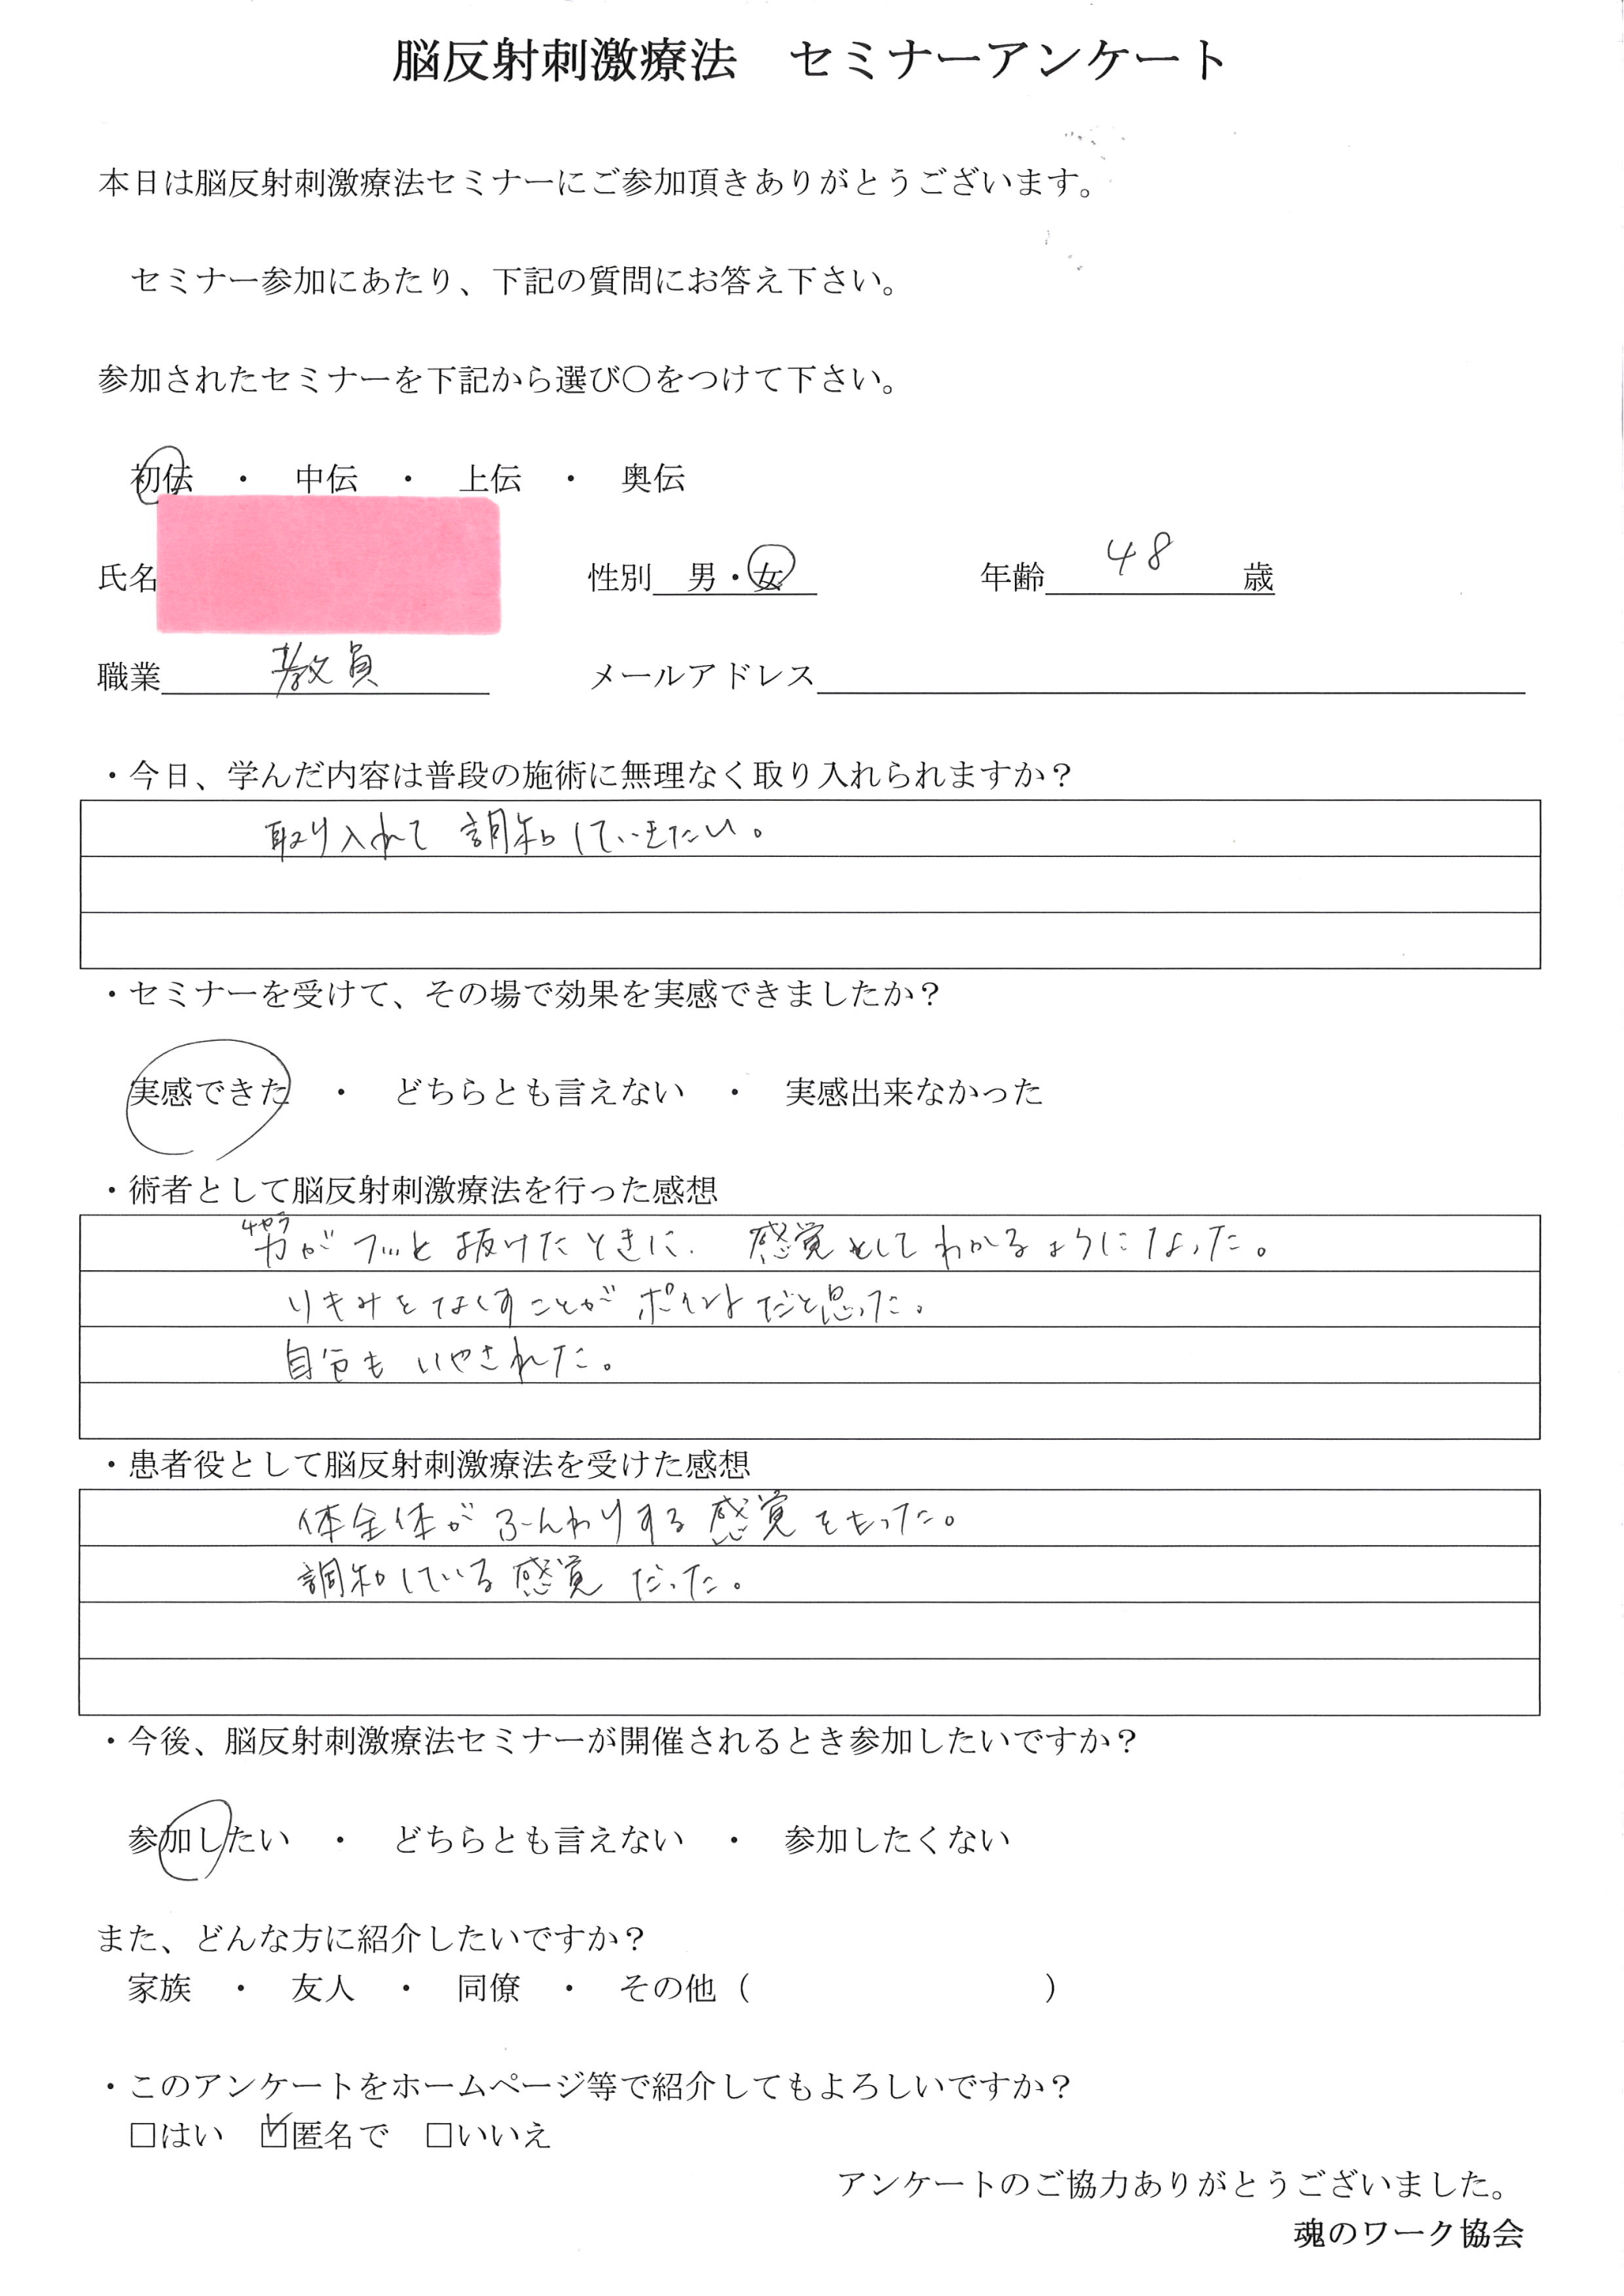 脳反射刺激療法　セミナーアンケート
本日は脳反射刺激療法セミナーにご参加頂きありがとうございます。
セミナー参加にあたり、下記の質問にお答え下さい。
参加されたセミナーを下記から選び〇をつけて下さい。
初伝　・　中伝　・　上伝　・　奥伝
氏名　性別　男・女　年齢　48　歳
職業　教員　メールアドレス
・今日、学んだ内容は普段の施術に無理なく取り入れられますか？
取り入れて 調和していきたい。
・セミナーを受けて、その場で効果を実感できましたか？
実感できた　・　どちらとも言えない　・　実感出来なかった
・術者として脳反射刺激療法を行った感想
力がフッと抜けたときに、感覚としてわかるようになった。
りきみをなくすことがポイントだと思った。
自分も いやされた。
・患者役として脳反射刺激療法を受けた感想
体全体がふんわりする感覚をもった。
調和している感覚だった。
・今後、脳反射刺激療法セミナーが開催されるとき参加したいですか？
参加したい　・　どちらとも言えない　・　参加したくない
また、どんな方に紹介したいですか？
家族　・　友人　・　同僚　・　その他（　　　　　　　　　）
・このアンケートをホームページ等で紹介してもよろしいですか？
□はい　☑匿名で　□いいえ
アンケートのご協力ありがとうございました。
魂のワーク協会